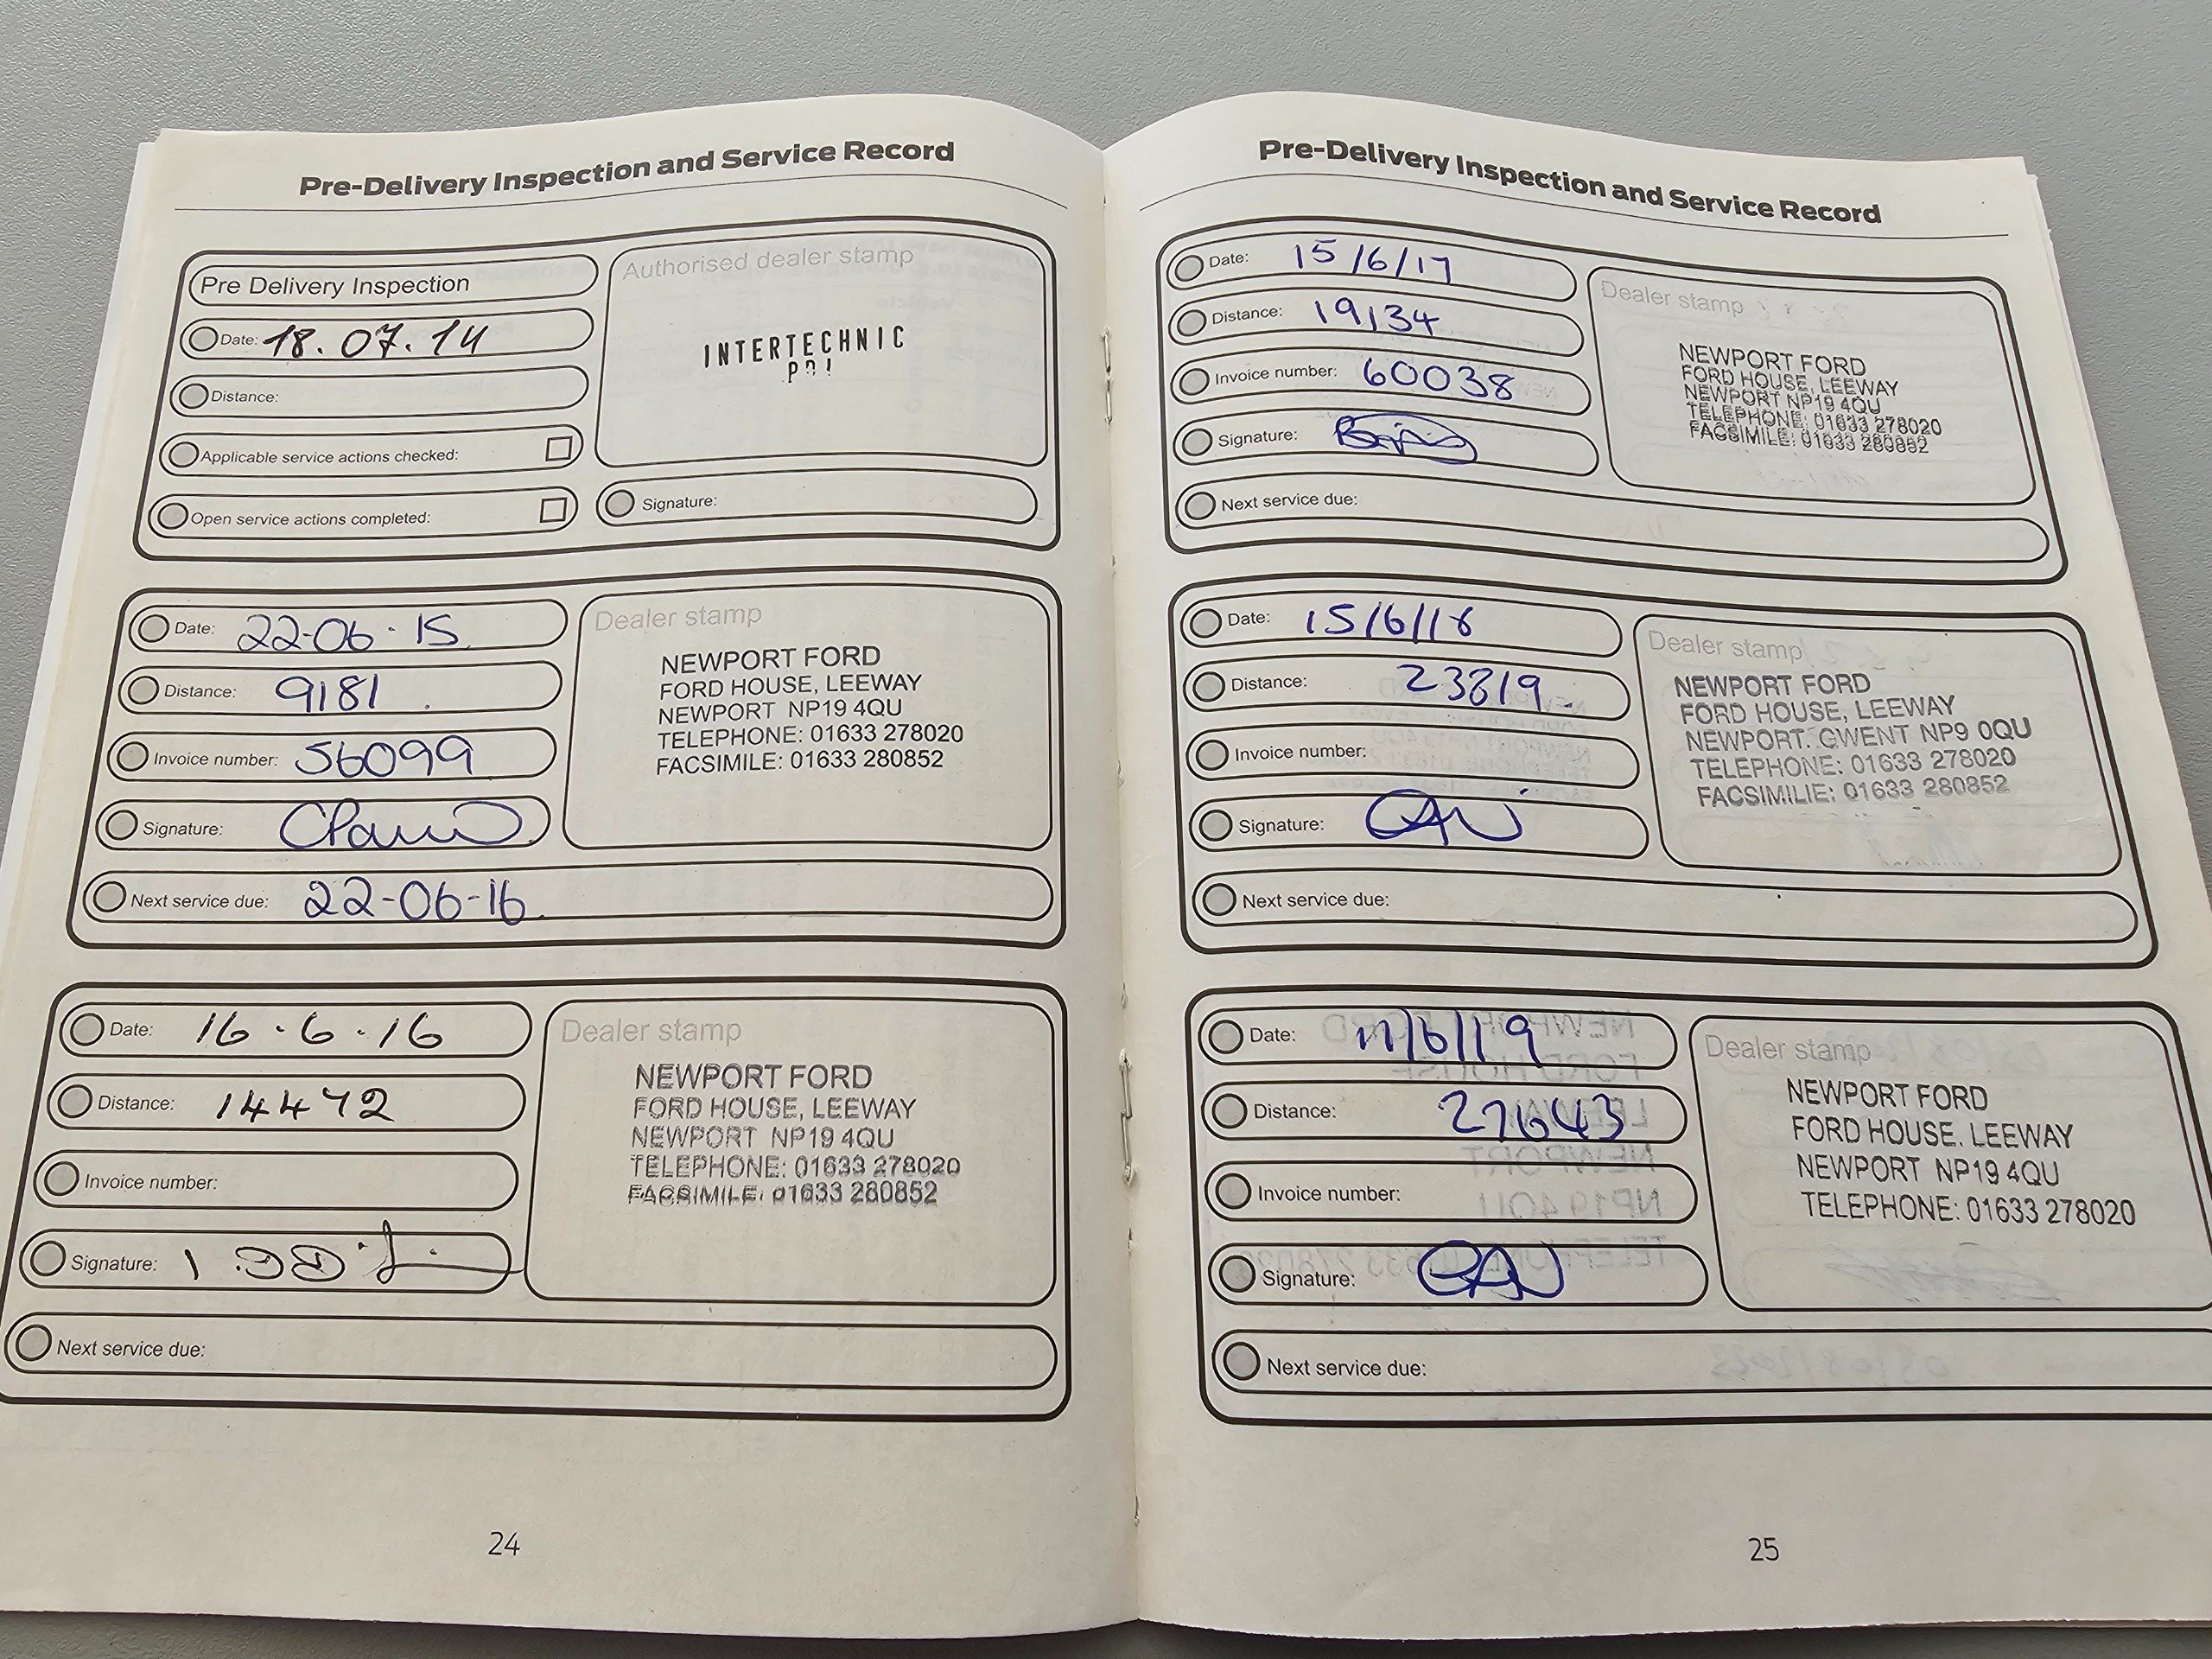 Pre-Delivery Inspection and Service Record
Pre Delivery Inspection
Date: 18.07.14
Distance:
Applicable service actions checked:
Open service actions completed:
Authorised dealer stamp
INTERTECHNIC
Signature:
Date: 22-06-15
Distance: 9181
Invoice number: 56099
Signature:
Next service due: 22-06-16
Dealer stamp
NEWPORT FORD
FORD HOUSE, LEEWAY
NEWPORT NP19 4QU
TELEPHONE: 01633 278020
FACSIMILE: 01633 280852
Date: 16-6-16
Distance: 14472
Invoice number:
Signature:
Next service due:
Dealer stamp
NEWPORT FORD
FORD HOUSE, LEEWAY
NEWPORT NP19 4QU
TELEPHONE: 01633 278020
FACSIMILE: 01633 280852
24
Pre-Delivery Inspection and Service Record
Date: 15/6/17
Distance: 19134
Invoice number: 60038
Signature:
Next service due:
Dealer stamp
NEWPORT FORD
FORD HOUSE, LEEWAY
NEWPORT NP19 4QU
TELEPHONE: 01633 278020
FACSIMILE: 01633 280852
Date: 15/6/18
Distance: 23819
Invoice number:
Signature:
Next service due:
Dealer stamp
NEWPORT FORD
FORD HOUSE, LEEWAY
NEWPORT. GWENT NP9 0QU
TELEPHONE: 01633 278020
FACSIMILIE: 01633 280852
Date: 17/6/19
Distance: 27643
Invoice number:
Signature:
Next service due:
Dealer stamp
NEWPORT FORD
FORD HOUSE. LEEWAY
NEWPORT NP19 4QU
TELEPHONE: 01633 278020
25